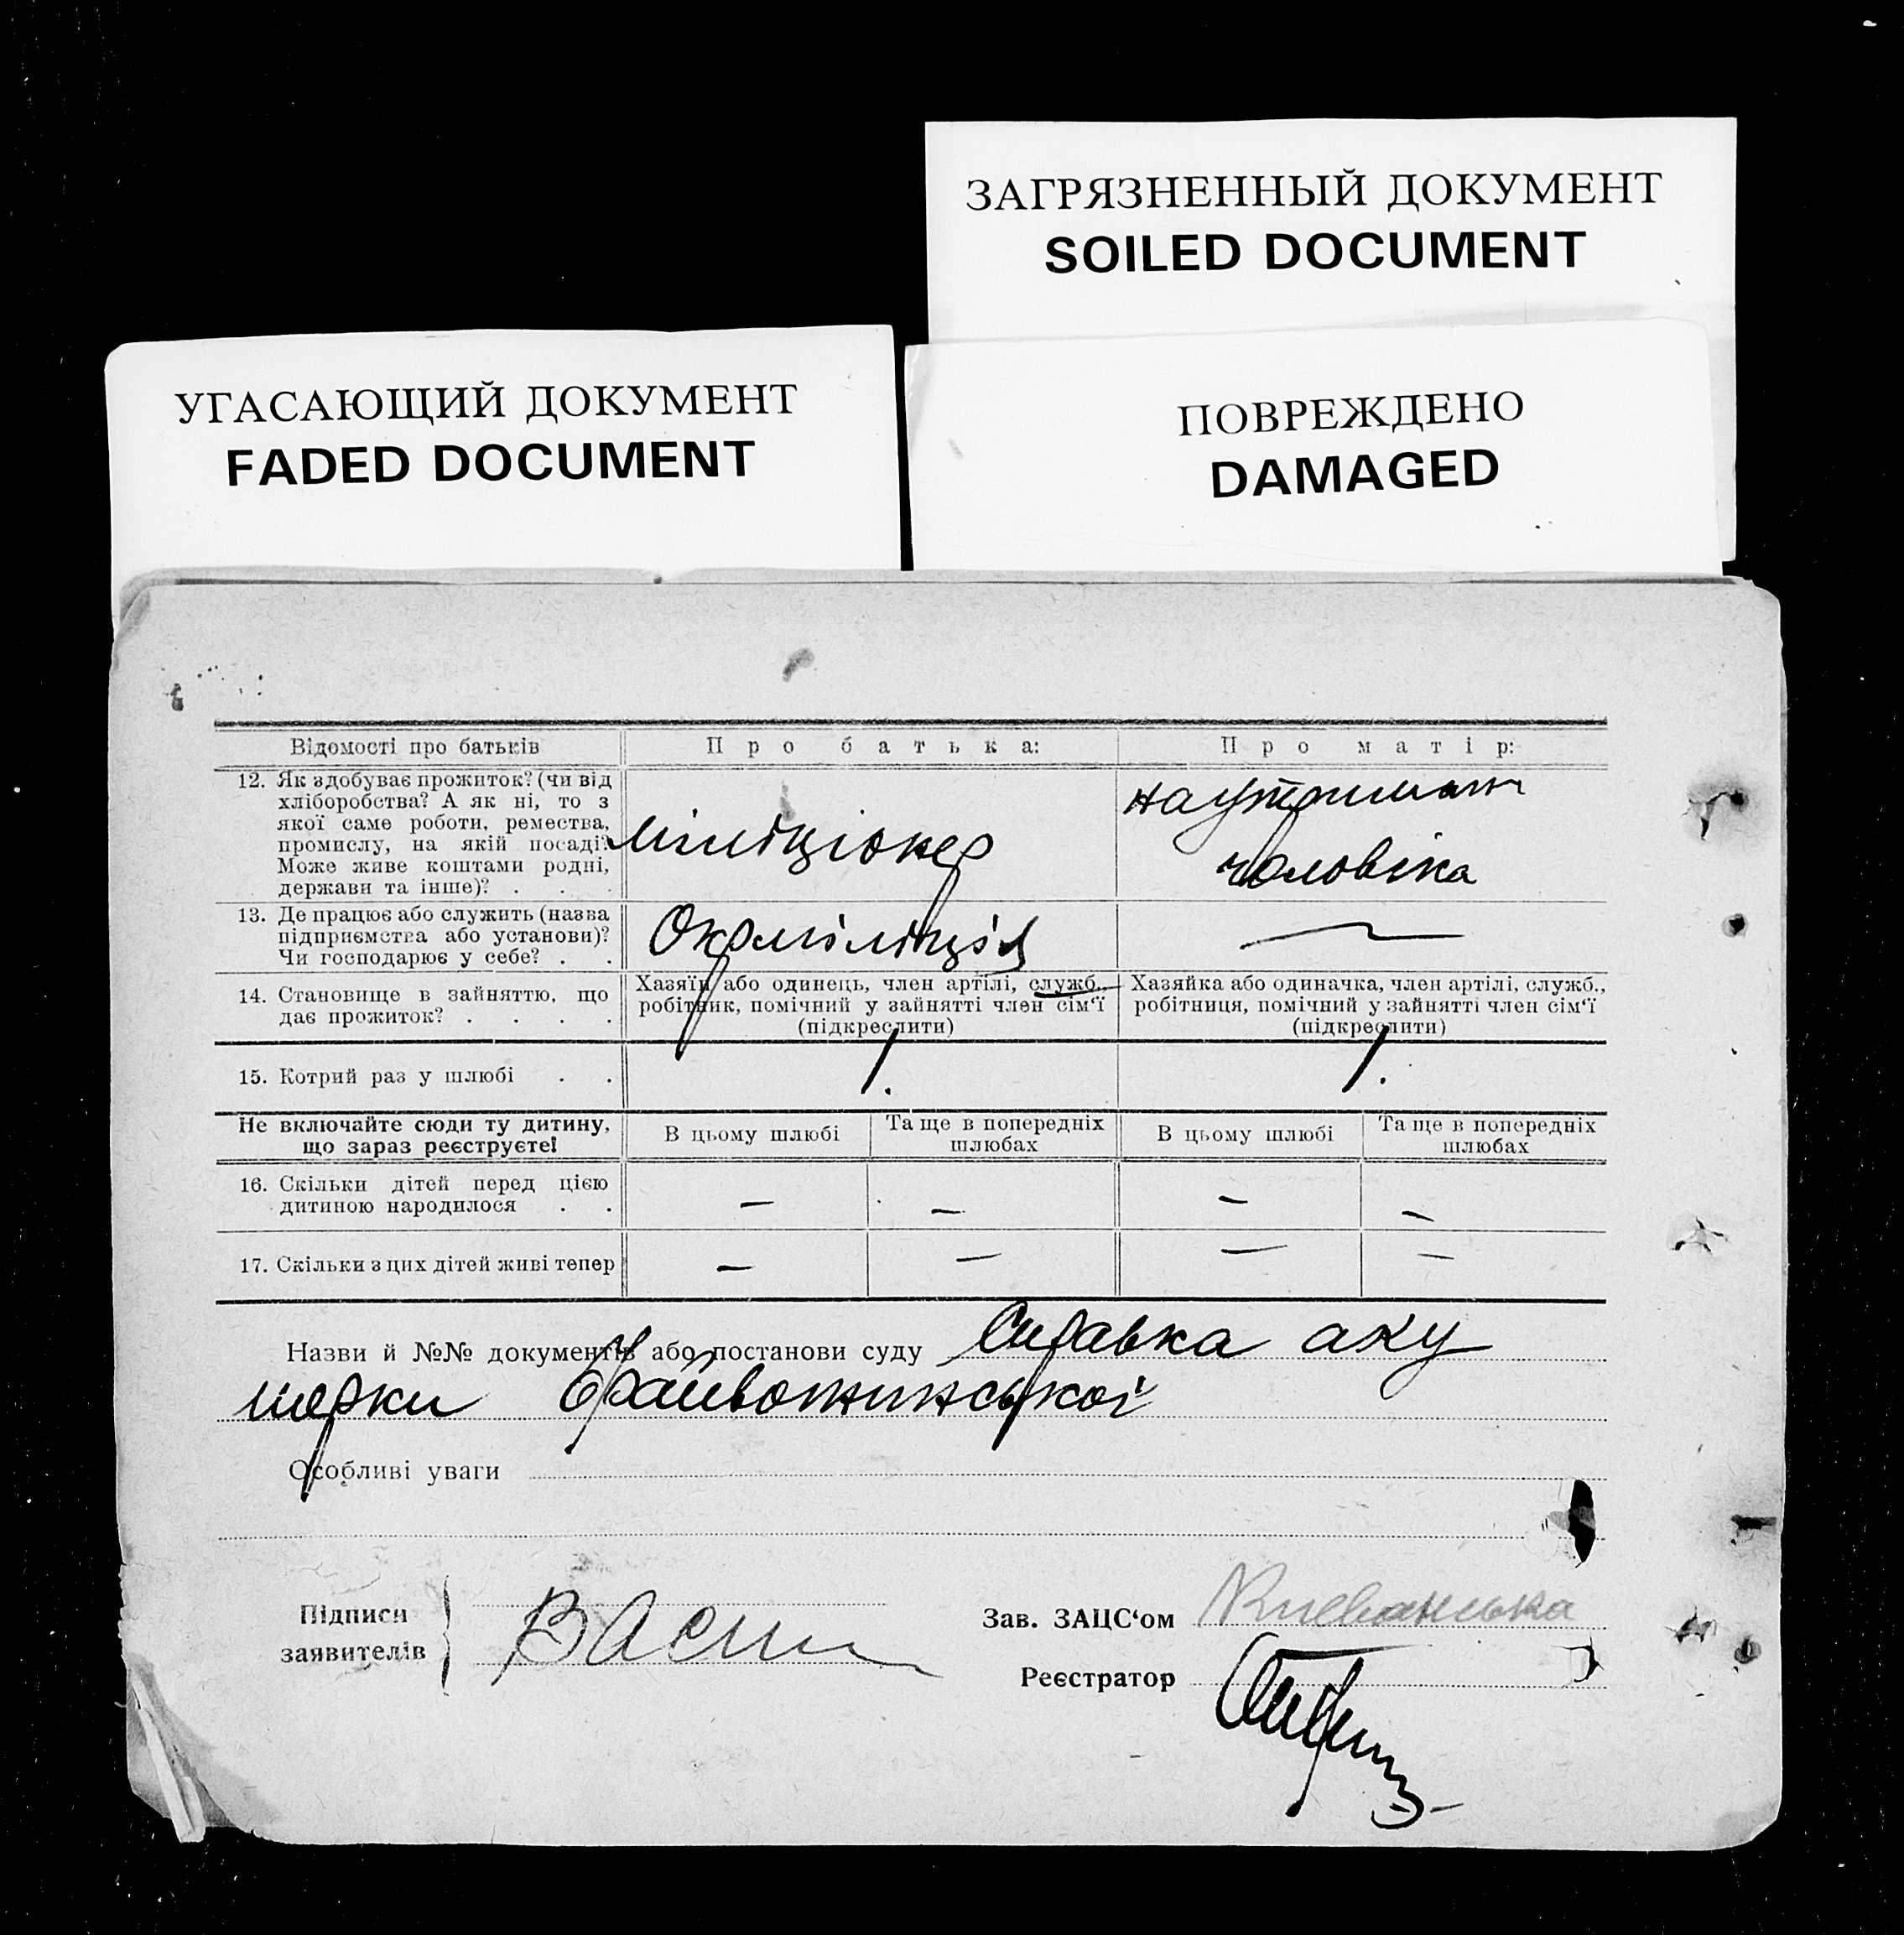 ЗАГРЯЗНЕННЫЙ ДОКУМЕНТ
SOILED DOCUMENT
УГАСАЮЩИЙ ДОКУМЕНТ
FADED DOCUMENT
ПОВРЕЖДЕНО
DAMAGED
Відомості про батьків
Про батька:
Про матір:
12. Як здобуває прожиток? (чи від
хліборобства? А як ні, то з
якої саме роботи, ремества,
промислу, на якій посаді?
Може живе коштами родні,
держави та інше)? . . .
міліціонер
на утриман
чоловіка
13. Де працює або служить (назва
підприємства або установи)?
Чи господарює у себе? . .
Окрміліція
—
14. Становище в зайняттю, що
дає прожиток? . . . .
Хазяїн або одинець, член артілі, служб.,
робітник, помічний у зайнятті член сім‘ї
(підкреслити)
Хазяйка або одиначка, член артілі, служб.,
робітниця, помічний у зайнятті член сім‘ї
(підкреслити)
15. Котрий раз у шлюбі . .
1.
1.
Не включайте сюди ту дитину,
що зараз реєструєте!
В цьому шлюбі
Та ще в попередніх
шлюбах
В цьому шлюбі
Та ще в попередніх
шлюбах
16. Скільки дітей перед цією
дитиною народилося . .
— — — —
17. Скільки з цих дітей живі тепер
— — — —
Назви й №№ документів або постанови суду Справка аку
шерки
Особливі уваги
Підписи
заявителів
Зав. ЗАЦС‘ом
Реєстратор